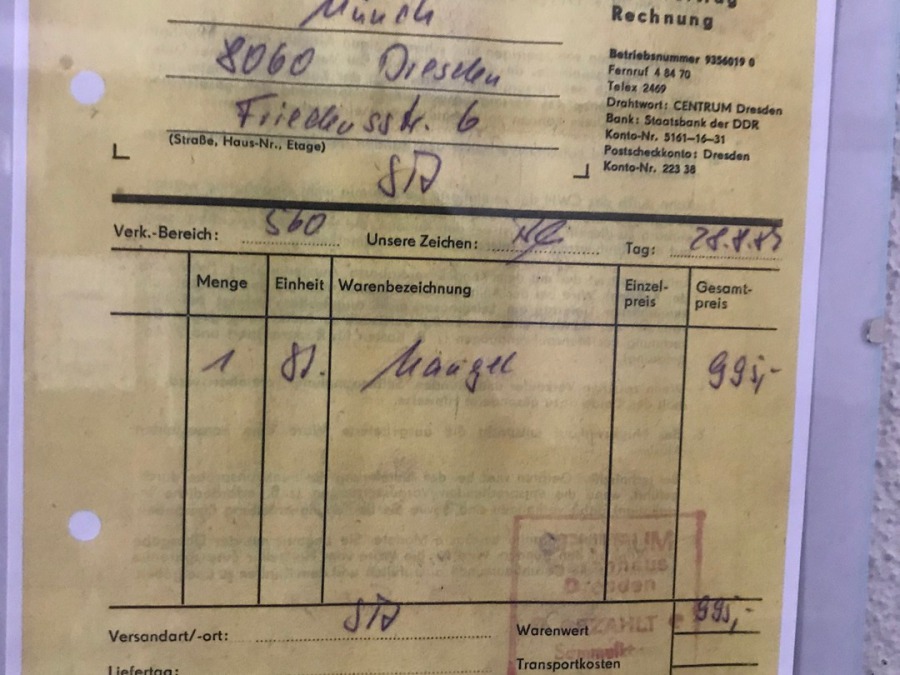 Münch
Rechnung
8060 Dresden
Friedensstr. 6
(Straße, Haus-Nr., Etage)
Betriebsnummer 9356019 0
Fernruf 4 84 70
Telex 2469
Drahtwort: CENTRUM Dresden
Bank: Staatsbank der DDR
Konto-Nr. 5161-16-31
Postscheckkonto: Dresden
Konto-Nr. 223 38
Verk.-Bereich: 560 Unsere Zeichen: Tag:
Menge Einheit Warenbezeichnung Einzel-preis Gesamt-preis
1 St. Mangel 995,-
Dresden
BEZAHLT
Versandart/-ort: Warenwert 995,-
Liefertag: Transportkosten